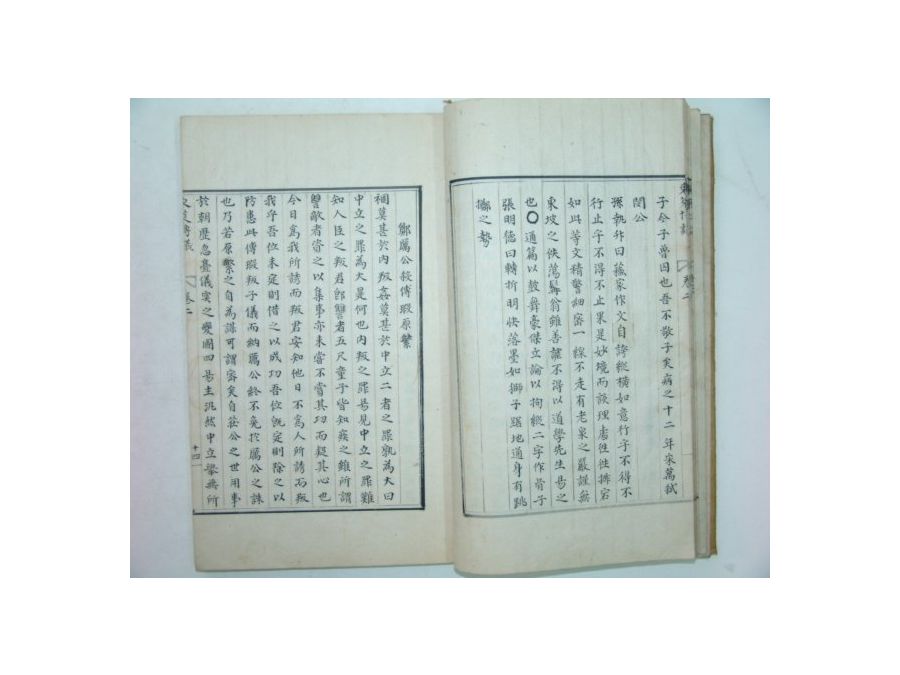 子今子魯囚也吾不敬子矣病之十二年宋萬弑
閔公
孫執升曰蘓家作文自謗縱橫如意行乎不得不
行止乎不得不止果是妙境而談理處徃徃踈宕
如此等文精警細密一線不走有老泉之嚴謹無
東坡之佚蕩髯翁雖善謔不得以道學先生易之
也〇通篇以鼓舞豪傑立論以拘縱二字作骨子
張明德曰轉折明快落墨如獅子踞地通身有跳
擲之勢
鄭厲公殺傅瑕原繁
禍莫甚於內叛姦莫甚於中立二者之罪孰為大曰
中立之罪為大是何也內叛之罪易見中立之罪難
知人臣之叛君卽讐者五尺童子皆知疾之雖所謂
讐敵者資之以集事亦未嘗不嘗其功而疑其心也
今日為我所誘而叛君安知他日不為人所誘而叛
我乎吾位未定則借之以成功吾位旣定則除之以
防患此傅瑕叛子儀而納厲公終不免於厲公之誅
也乃若原繁之自為謀可謂密矣自莊公之世用事
於朝歷忽亹儀突之變國四易主汎然中立擧無所
卷二
十四